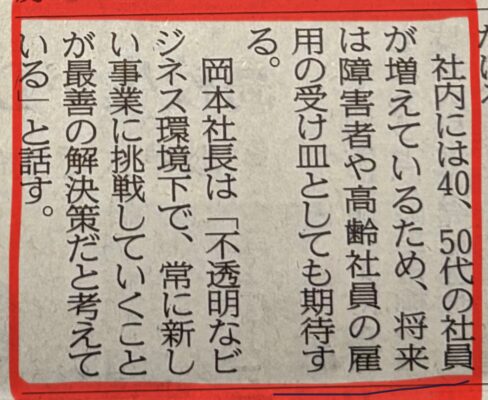 社内には40、50代の社員
が増えているため、将来
は障害者や高齢社員の雇
用の受け皿としても期待す
る。
岡本社長は「不透明なビ
ジネス環境下で、常に新し
い事業に挑戦していくこと
が最善の解決策だと考えて
いる」と話す。